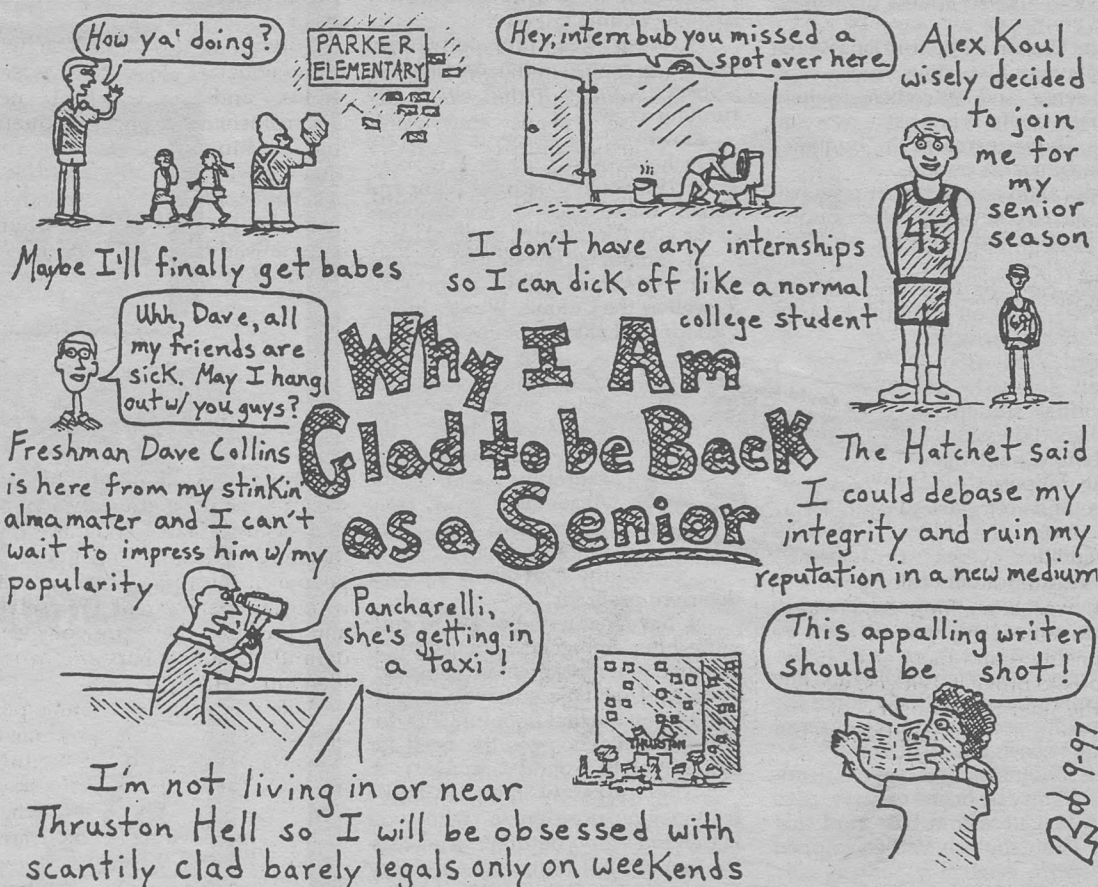 How ya' doing?
PARKER
ELEMENTARY
Maybe I'll finally get babes
Hey, intern bub you missed a
spot over here
I don't have any internships
so I can dick off like a normal
college student
Alex Koul
wisely decided
to join
me for
my
senior
season
45
Uhh, Dave, all
my friends are
sick. May I hang
out w/ you guys?
Freshman Dave Collins
is here from my stinkin'
alma mater and I can't
wait to impress him w/my
popularity
Why I Am
Glad to be Back
as a Senior
The Hatchet said
I could debase my
integrity and ruin my
reputation in a new medium
Pancharelli,
she's getting in
a taxi!
THRUSTON
I'm not living in or near
Thruston Hell so I will be obsessed with
scantily clad barely legals only on weekends
This appalling writer
should be shot!
9-97